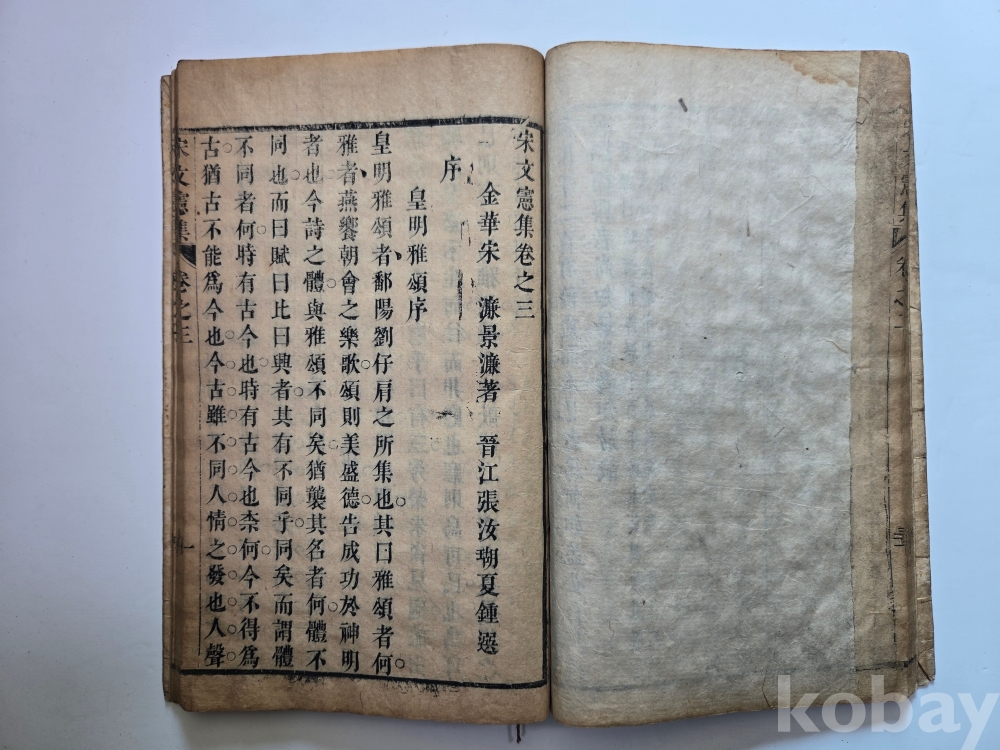 宋文憲集卷之三
金華宋濂景濂著 晉江張汝瑚夏鍾選
序
皇明雅頌序
皇明雅頌者鄱陽劉仔肩之所集也其曰雅頌者何
雅者燕饗朝會之樂歌頌則美盛德告成功於神明
者也今詩之體與雅頌不同矣猶襲其名者何體不
同也而曰賦曰比曰興者其有不同乎同矣而謂體
不同者何時有古今也時有古今也柰何今不得爲
古猶古不能爲今也今古雖不同人情之發也人聲
宋文憲集 卷之三 一
kobay